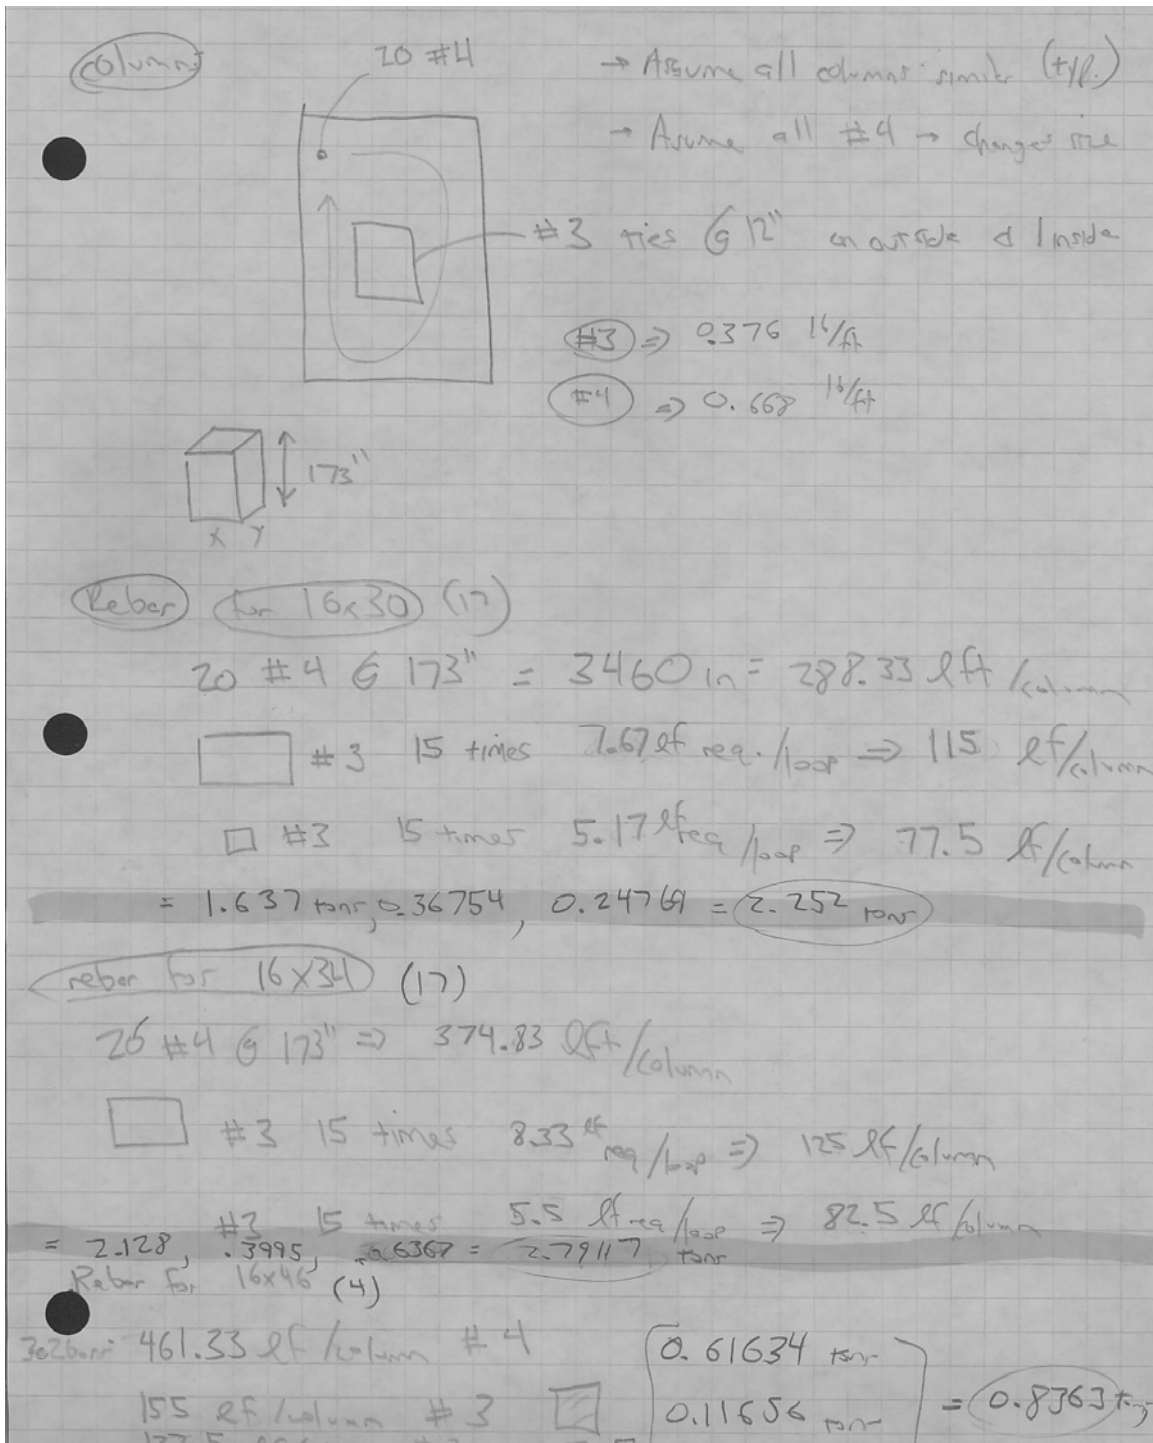 Columns
20 #4
→ Assume all columns similar (typ.)
→ Assume all #4 → changes size
#3 ties @ 12" on outside & inside
#3 ⇒ 0.376 lb/ft
#4 ⇒ 0.668 lb/ft
173"
X Y
Rebar for 16x30 (17)
20 #4 @ 173" = 3460 in = 288.33 lft/column
#3 15 times 7.67 lf req./loop ⇒ 115 lf/column
#3 15 times 5.17 lf req/loop ⇒ 77.5 lf/column
= 1.637 tons, 0.36754, 0.24769 = 2.252 tons
rebar for 16X34 (17)
26 #4 @ 173" ⇒ 374.83 lft/column
#3 15 times 8.33 lf req/loop ⇒ 125 lf/column
#3 15 times 5.5 lf req/loop ⇒ 82.5 lf/column
= 2.128, .3995, = 2.79117 tons
Rebar for 16x46 (4)
461.33 lf/column #4
0.61634 tons
155 lf/column #3
0.11656 tons
= 0.8363 tons